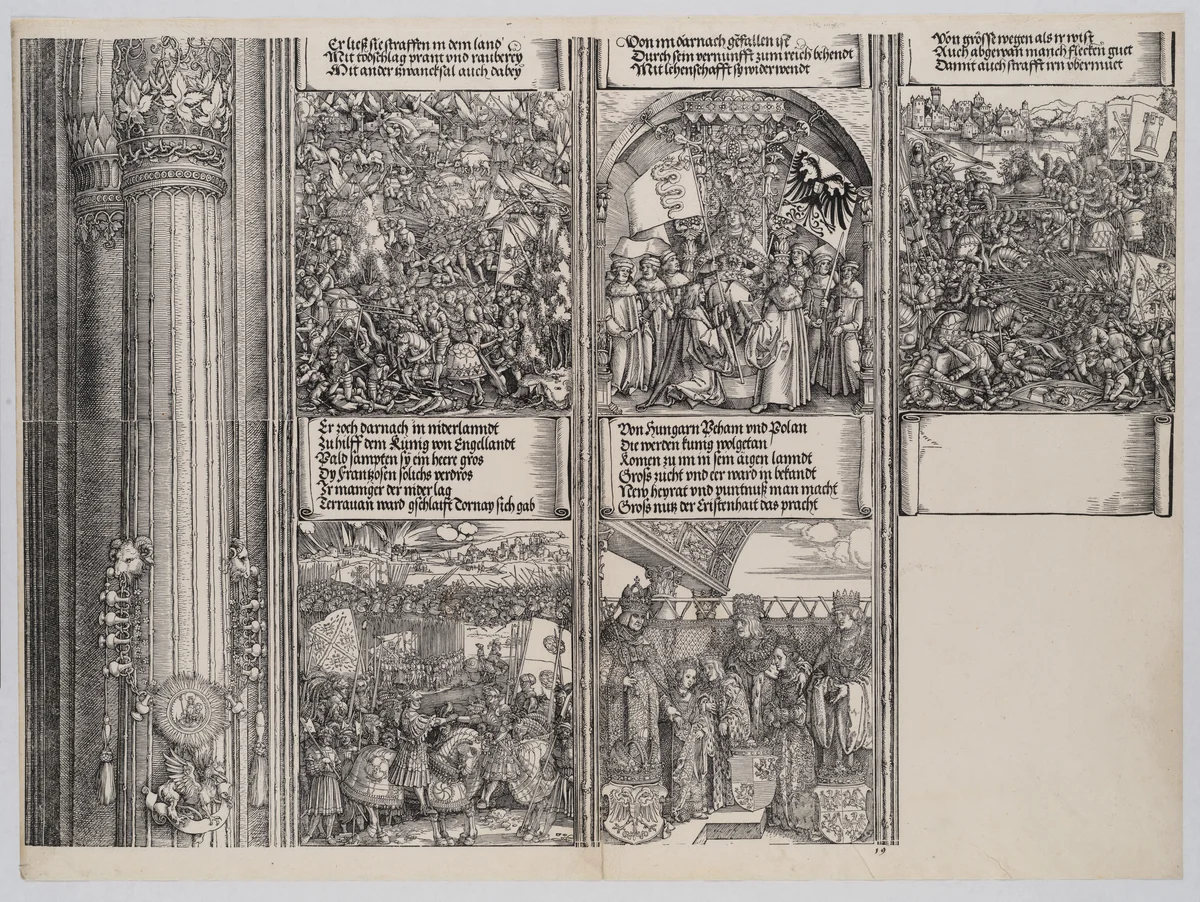 Er ließ sie straffen in dem land
Mit todschlag prant vnd rauberey
Mit ander zwancksal auch dabey
Von im darnach gefallen ist
Durch sein vernunfft zum reich behendt
Mit lehenschafft sy widerwendt
Von grösse wegen als ir wist
Auch abgewan manch flecken guet
Damit auch strafft irn vbermuet
Er zoch darnach in niderlanndt
Zu hilff dem Künig von Engellandt
Bald sampten sy ein heere gros
Dy Frantzosen solichs verdros
Ir maniger der nider lag
Terrauan ward gschlaift Tornay sich gab
Von Hungarn Beham vnd Polan
Die werden kunig wolgetan
Komen zu im in sein aigen lanndt
Groß zucht vnd eer ward in bekandt
New heyrat vnd puntnuß man macht
Groß nutz der Cristenhait das pracht
19